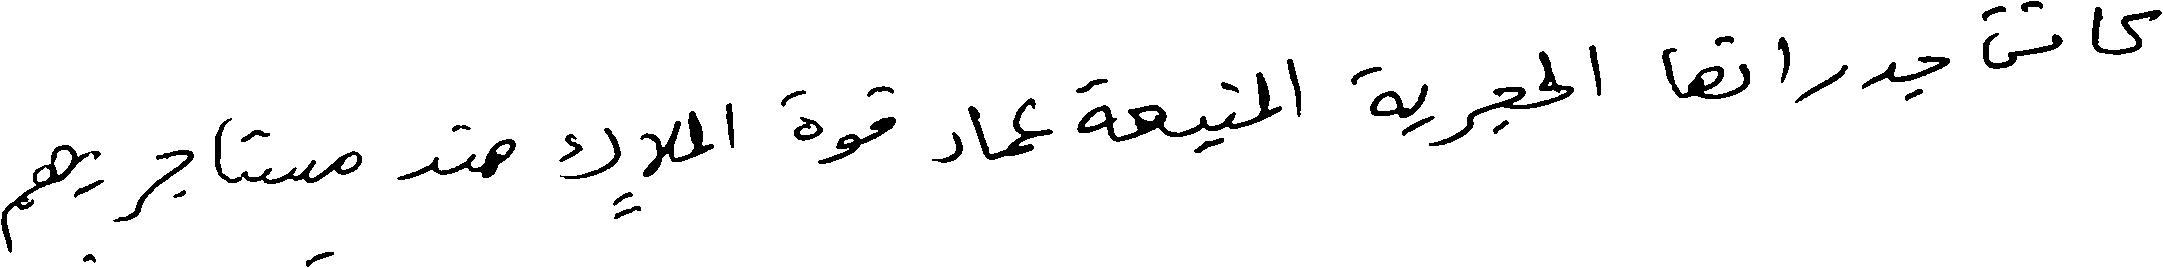 كانت جدرانها الحجرية المنيعة عماد قوة الملاك ضد مستاجريهم